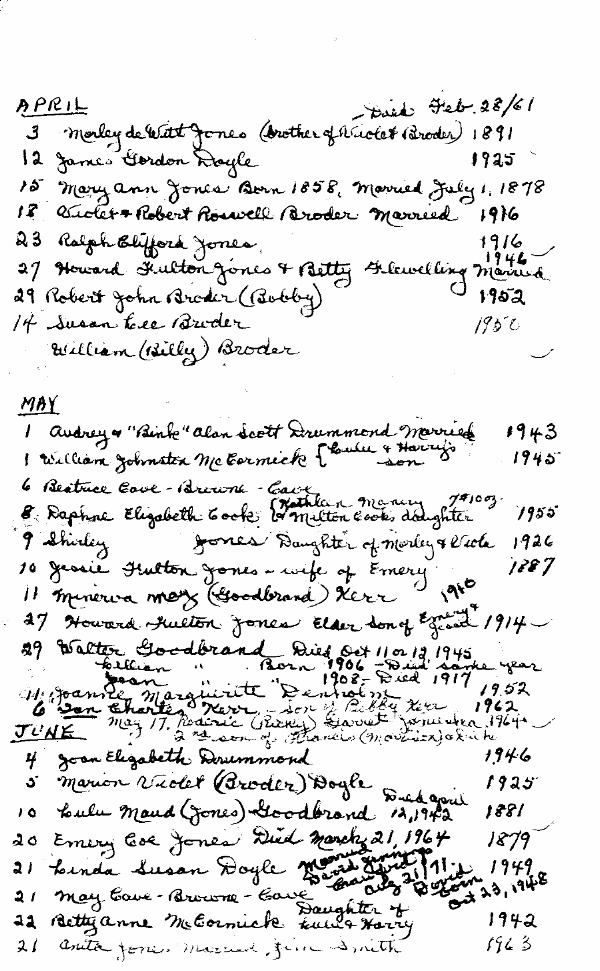 APRIL
Died Feb. 28/61
3 Morley de Witt Jones (brother of Violet Broder) 1891
12 James Gordon Doyle 1925
15 Mary Ann Jones Born 1858, Married July 1, 1878
18 Violet & Robert Roswell Broder Married 1916
23 Ralph Clifford Jones 1916
27 Howard Fulton Jones & Betty Flewelling Married 1946
29 Robert John Broder (Bobby) 1952
14 Susan Lee Broder
William (Billy) Broder
MAY
1 Audrey & "Bink" Alan Scott Drummond Married 1943
1 William Johnston McCormick {Lulu & Harry's son 1945
6 Beatrice Cave-Browne-Cave
8 Daphne Elizabeth Cook {Kathleen & Milton Cooks daughter 7# 10 oz. 1955
9 Shirley Jones Daughter of Morley & Viola 1926
10 Jessie Fulton Jones - wife of Emery 1887
11 Minerva May (Goodbrand) Kerr 1910
27 Howard Fulton Jones Elder son of Emery & Jessie 1914
29 Walter Goodbrand Died Oct 11 or 12, 1945
Lillian " Born 1906 - Died same year
Jean " 1908 - Died 1917
11 Joanne Marguirite Denholm 1952
6 Ian Charles Kerr - son of Bobby Kerr 1962
May 17, (Ricky) Garret 1964
2nd son of Francis
JUNE
4 Joan Elizabeth Drummond 1946
5 Marion Violet (Broder) Doyle 1925
10 Lulu Maud (Jones) Goodbrand Died April 12, 1942 1881
20 Emery Coe Jones Died March 21, 1964 1879
21 Linda Susan Doyle Married David Aug 21/71 1949
David Born Oct 23, 1948
21 May Cave-Browne-Cave
22 Betty Anne McCormick Daughter of Lulu & Harry 1942
21 Anita Jones Married Jim Smith 1963